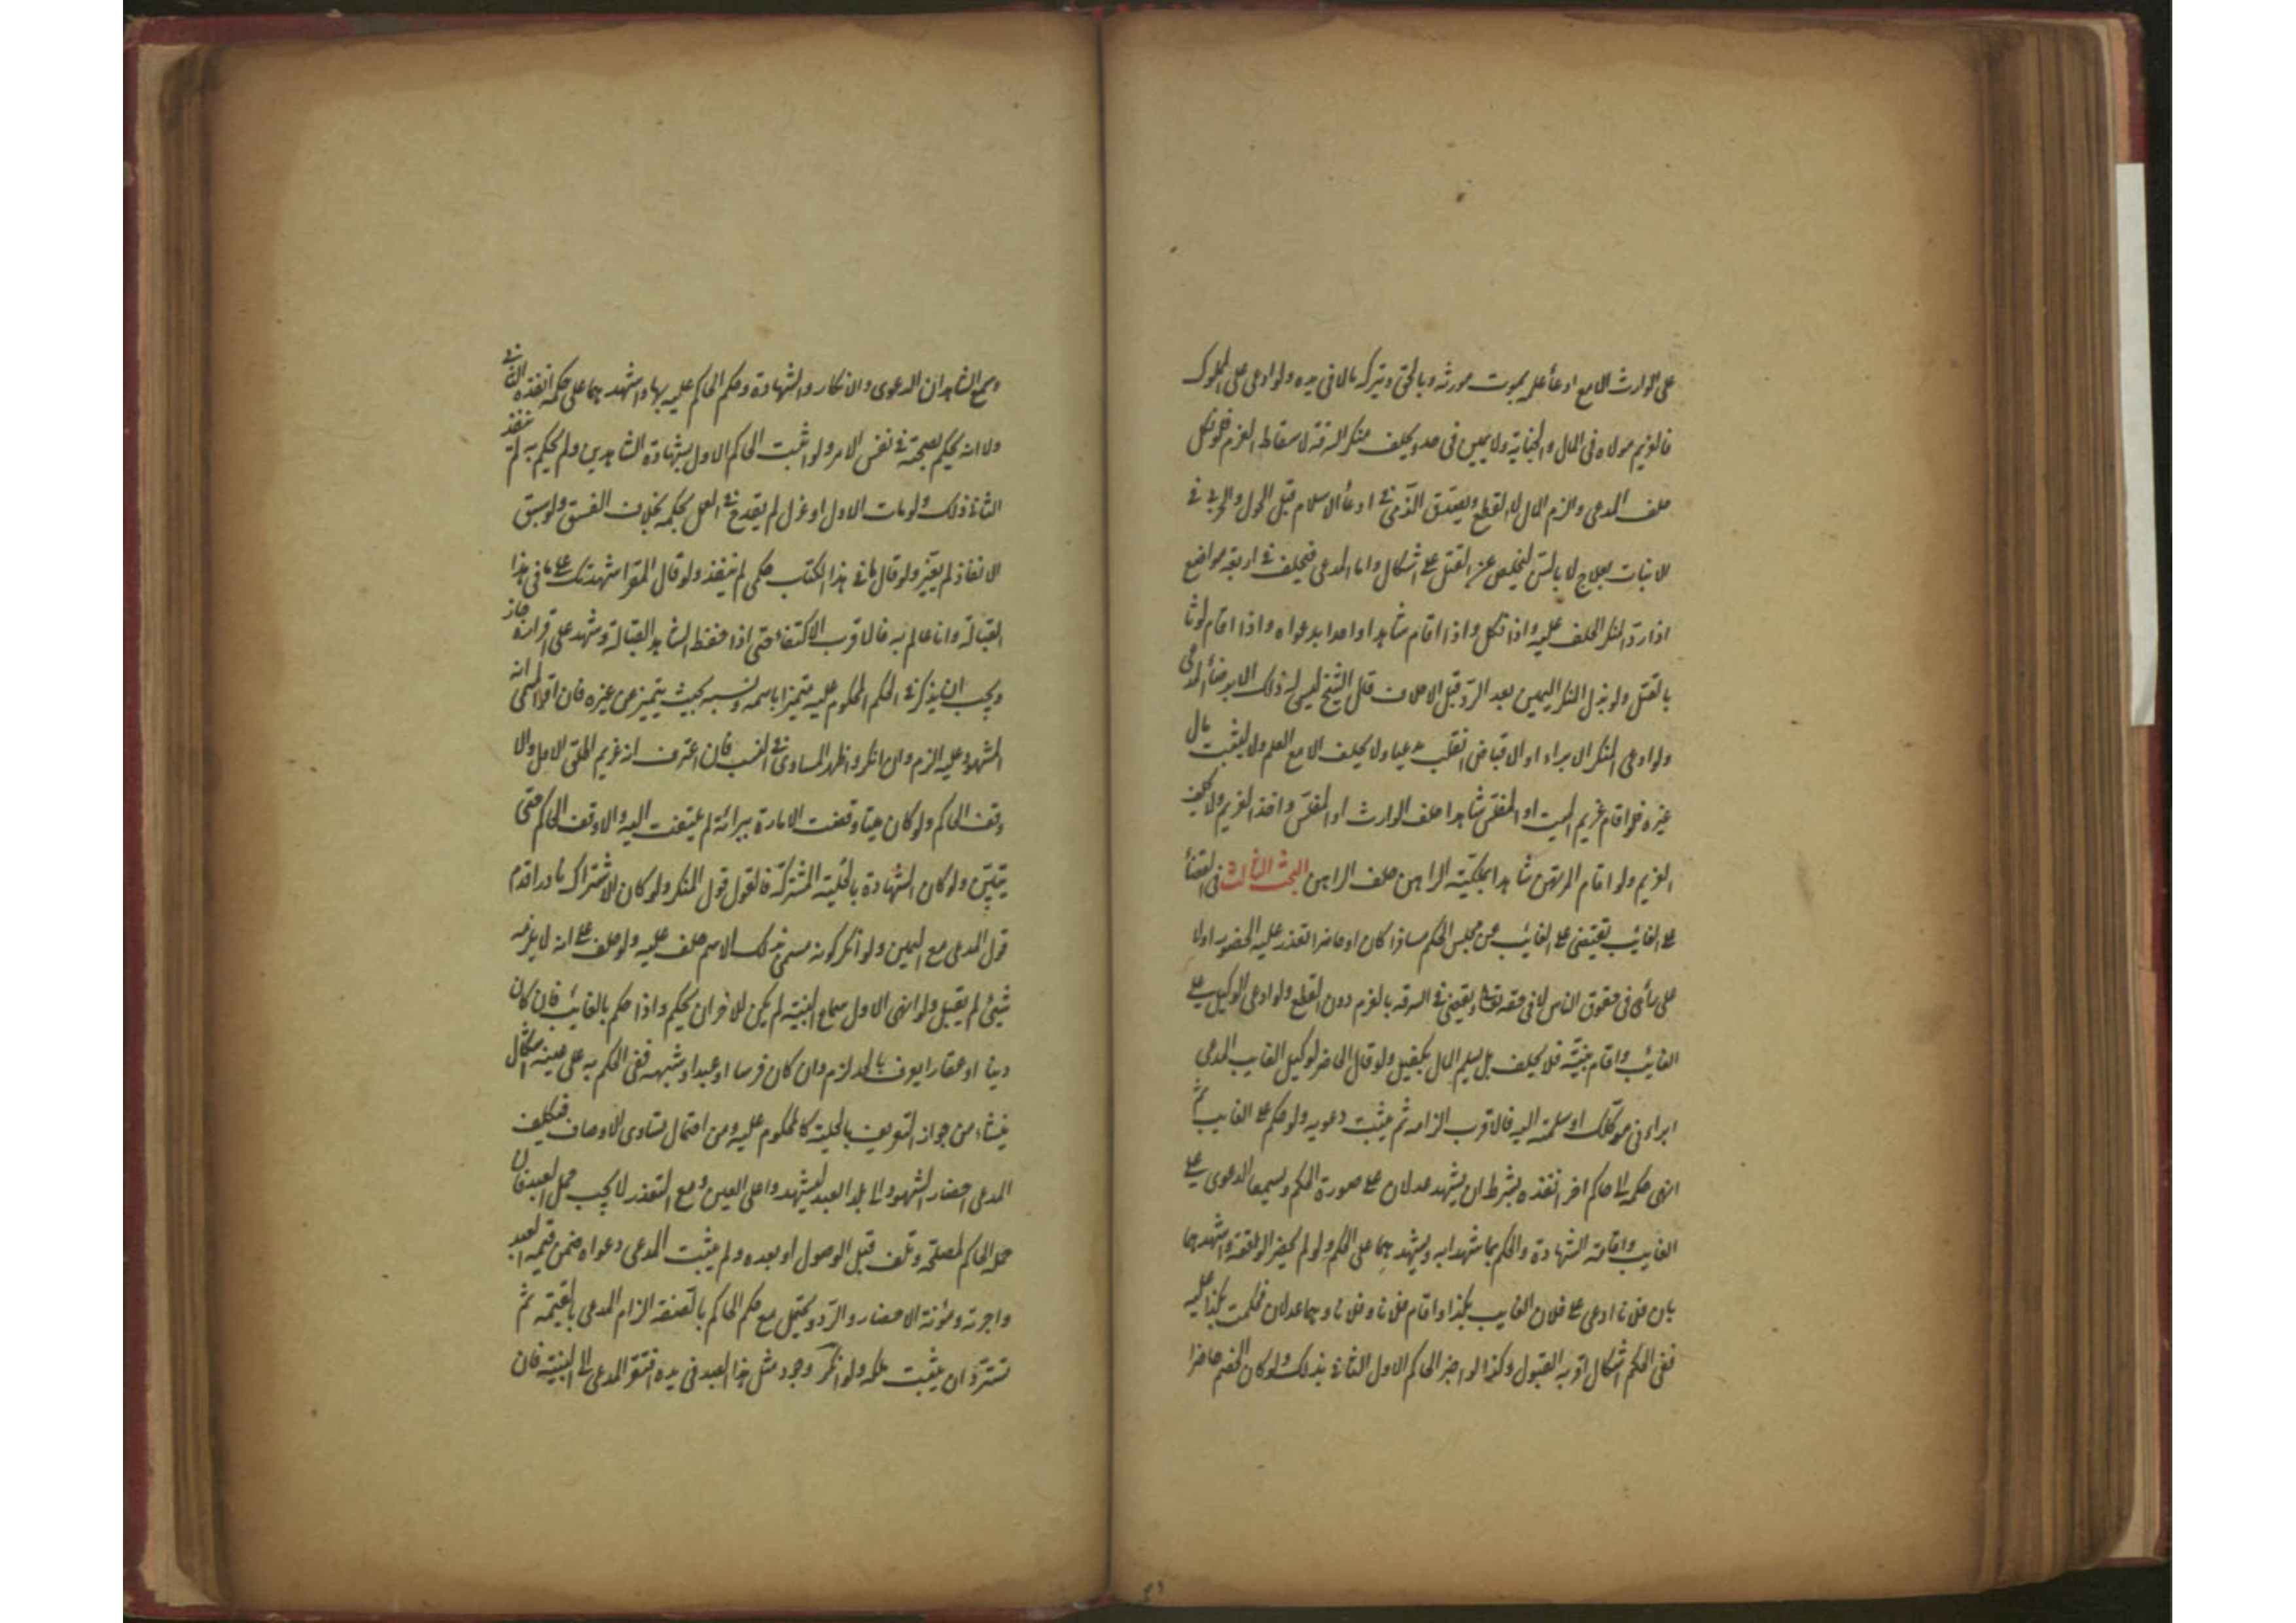 على الوارث الا مع ادعاء علمه بموت مورثه وبالحق وتركه مالا فى يده ولو ادعى على المملوك
فالغريم مولاه فى المال والجناية ولا يمين فى حد ويحلف منكر السرقة لاسقاط الغرم فلو نكل
حلف المدعى والزم المال لا القطع ويصدق الذمى فى ادعاء الاسلام قبل الحول والحربى فى
الانبات بعلاج لا بالسن ليخلص عن القتل على اشكال واما المدعى فيحلف فى اربعة مواضع
اذا رد المنكر الحلف عليه واذا نكل واذا اقام شاهدا واحدا بدعواه واذا اقام لوثا
بالقتل ولو بذل المنكر اليمين بعد الرد قبل الاحلاف قال الشيخ ليس له ذلك الا برضاء المدعى
ولو ادعى المنكر الابراء او الاقباض انقلب مدعيا ولا يحلف الا مع العلم ولا يثبت مال
غيره فلو اقام غريم الميت او المفلس شاهدا حلف الوارث او المفلس واخذ الغريم ولا يحلف
الغريم ولو اقام المرتهن شاهدا بملكية الراهن حلف الراهن البحث الثالث فى القضاء
على الغائب يقضى على الغائب عن مجلس الحكم مسافرا كان او حاضرا تعذر عليه الحضور اولا
على رأى فى حقوق الناس لا فى حقه تعالى ويقضى فى السرقة بالغرم دون القطع ولو ادعى الوكيل على
الغائب واقام بينة فلا يحلف بل يسلم المال بكفيل ولو قال الحاضر لوكيل الغايب المدعى
ابراءنى موكلك او سلمته اليه فالاقرب الزامه ثم يثبت دعويه ولو حكم على الغايب ثم
انهى حكمه الى حاكم اخر انفذه بشرط ان يشهد عدلان على صورة الحكم ويسمعا الدعوى على
الغايب واقامة الشهادة والحكم بما شهدا به ويشهد بهما على الحكم ولو لم يحضرا الواقعة واشهدهما
بان فلانا ادعى على فلان الغايب بكذا واقام فلانا وفلانا وهما عدلان فحكمت بكذا عليه
ففى الحكم اشكال اقربه القبول وكذا لو اخبر الحاكم الاول الثانى بذلك ولو كان الخصم حاضرا
وسمع الشاهدان الدعوى والانكار والشهادة وحكم الحاكم عليه بها واشهدهما على حكمه انفذه الثانى
ولا انه يحكم بصحته فى نفس الامر ولو اثبت الحاكم الاول بشهادة الشاهدين ولم يحكم به لم ينفذ
الثانى ذلك ولو مات الاول او عزل لم يقدح فى العمل بحكمه بخلاف الفسق ولو سبق
الانفاذ لم يتغير ولو قال ما فى هذا الكتاب حكمى لم ينفذ ولو قال المقر اشهدتك على ما فى هذا
القبالة وانا عالم به فالاقرب الاكتفاء حتى اذا حفظ الشاهد القبالة وشهد على اقراره جاز
ويجب ان يذكر فى الحكم المحكوم عليه متميزا باسمه ونسبه بحيث يتميز عن غيره فان اقر المسمى انه
المشهود عليه الزم وان انكر واظهر المساوى فى النسب فان اعترف انه غريم اطلق الاول والا
وقف الحاكم ولو كان ميتا وقضت الامارة ببرائه لم يلتفت اليه والا وقف الحاكم حتى
يتبين ولو كان الشهادة بالحلية المشتركة فالقول قول المنكر ولو كان الاشتراك نادرا قدم
قول المدعى مع اليمين ولو انكر كونه مسمى بذلك الاسم حلف عليه ولو حلف على انه لا يلزمه
شيئ لم يقبل ولو انهى الاول سماع البينة لم يكن للاخر ان يحكم واذا حكم بالغائب فان كان
دينا او عقارا يعرف بالحد لزم وان كان فرسا او عبدا وشبهه ففى الحكم به على عينه اشكال
ينشاء من جواز التعريف بالحلية كالمحكوم عليه ومن احتمال تساوى الاوصاف فيكلف
المدعى احضار الشهود الى بلد العبد ليشهدوا على العين ومع التعذر لا يجب حمل العبد فان
حمله الحاكم لمصلحة وتلف قبل الوصول او بعده ولم يثبت المدعى دعواه ضمن قيمة العبد
واجرته ومؤنة الاحضار والرد ويحتمل مع حكم الحاكم بالصفة الزام المدعى بالقيمة ثم
تسترد ان يثبت ملكه ولو انكر وجود مثل هذا العبد فى يده افتقر المدعى الى البينة فان